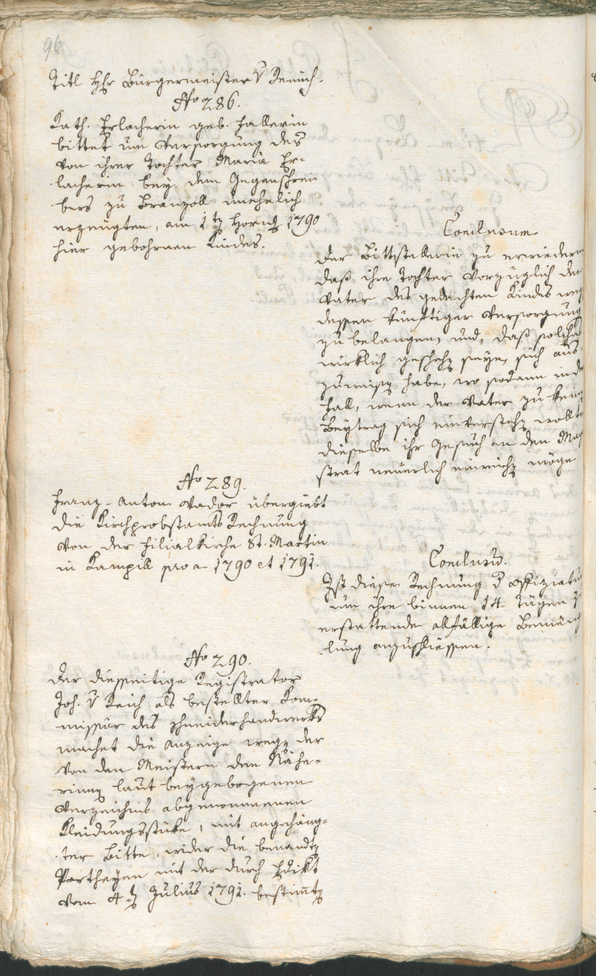 96.
Titl Hr Bürgermeister v
No 286.
Kath. Erlacherin geb. Hallerin
bittet um Versorgung des
von ihrer Tochter Maria Er-
lacherin bey dem
bers zu Branzoll unehelich
erzeugten, am 1t Hornung 1790
hier gebohrnen Kindes.
Conclusum
Der Bittstellerin zu erwiedern
daß ihre Tochter vorzüglich den
Vater des gedachten Kindes weg
dessen künftiger Versorgung
zu belangen, und, daß solches
wirklich geschehen seye, sich aus
zuweisen habe, wo sodann im
Fall, wenn der Vater zu kein
Beytrag sich einverstehen wollte
dieselbe ihr Gesuch an den Mag
strat neuerlich einreichen möge
No 289.
Franz Anton Vador übergiebt
die Kirchprobstamts Rechnung
von der Filialkirche St. Martin
in Kampill pro a 1790 et 1791.
Conclusum.
Ist diese Rechnung d Offiziatur
um ihre binnen 14 Tägen z
erstattende allfällige Bemäng
lung anzuschliessen.
No 290.
Der diesseitige Registrator
Joh. v Reich als bestellter Kom-
missär des Schneiderhandwerks
machet die Anzeige wegen der
von den Meistern den Nähe-
rinnen laut beygebogenen
Verzeichnis abgenommenen
Kleidungsstücke, mit angehäng-
ter Bitte, wider die benannten
Partheyen mit der durch Edikt
vom 4ten Julius 1791. bestimten